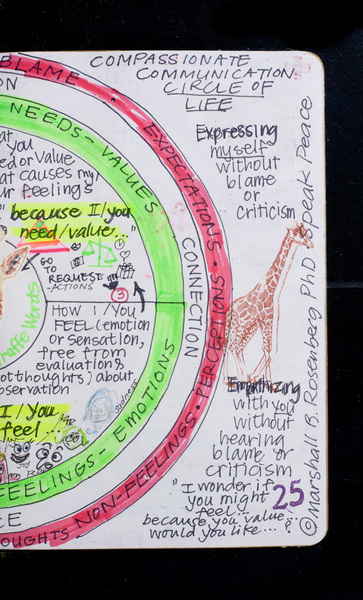 COMPASSIONATE
COMMUNICATION
CIRCLE OF
LIFE
BLAME
EXPECTATIONS
PERCEPTIONS
NON-FEELINGS
NEEDS - VALUES
CONNECTION
FEELINGS - EMOTIONS
you
or Value
that causes my/
feelings
"because I/you
need/value..."
GO
TO
REQUEST
-ACTIONS
3
Words
HOW I/YOU
FEEL (emotion
or sensation,
free from
evaluations
thoughts) about
observation
I/You
feel...
Expressing
myself
without
blame
or
criticism
Empathizing
with you
without
hearing
blame or
criticism
"I wonder if
you might
feel...
because you value...
would you like..."?
25
©Marshall B. Rosenberg PhD Speak Peace